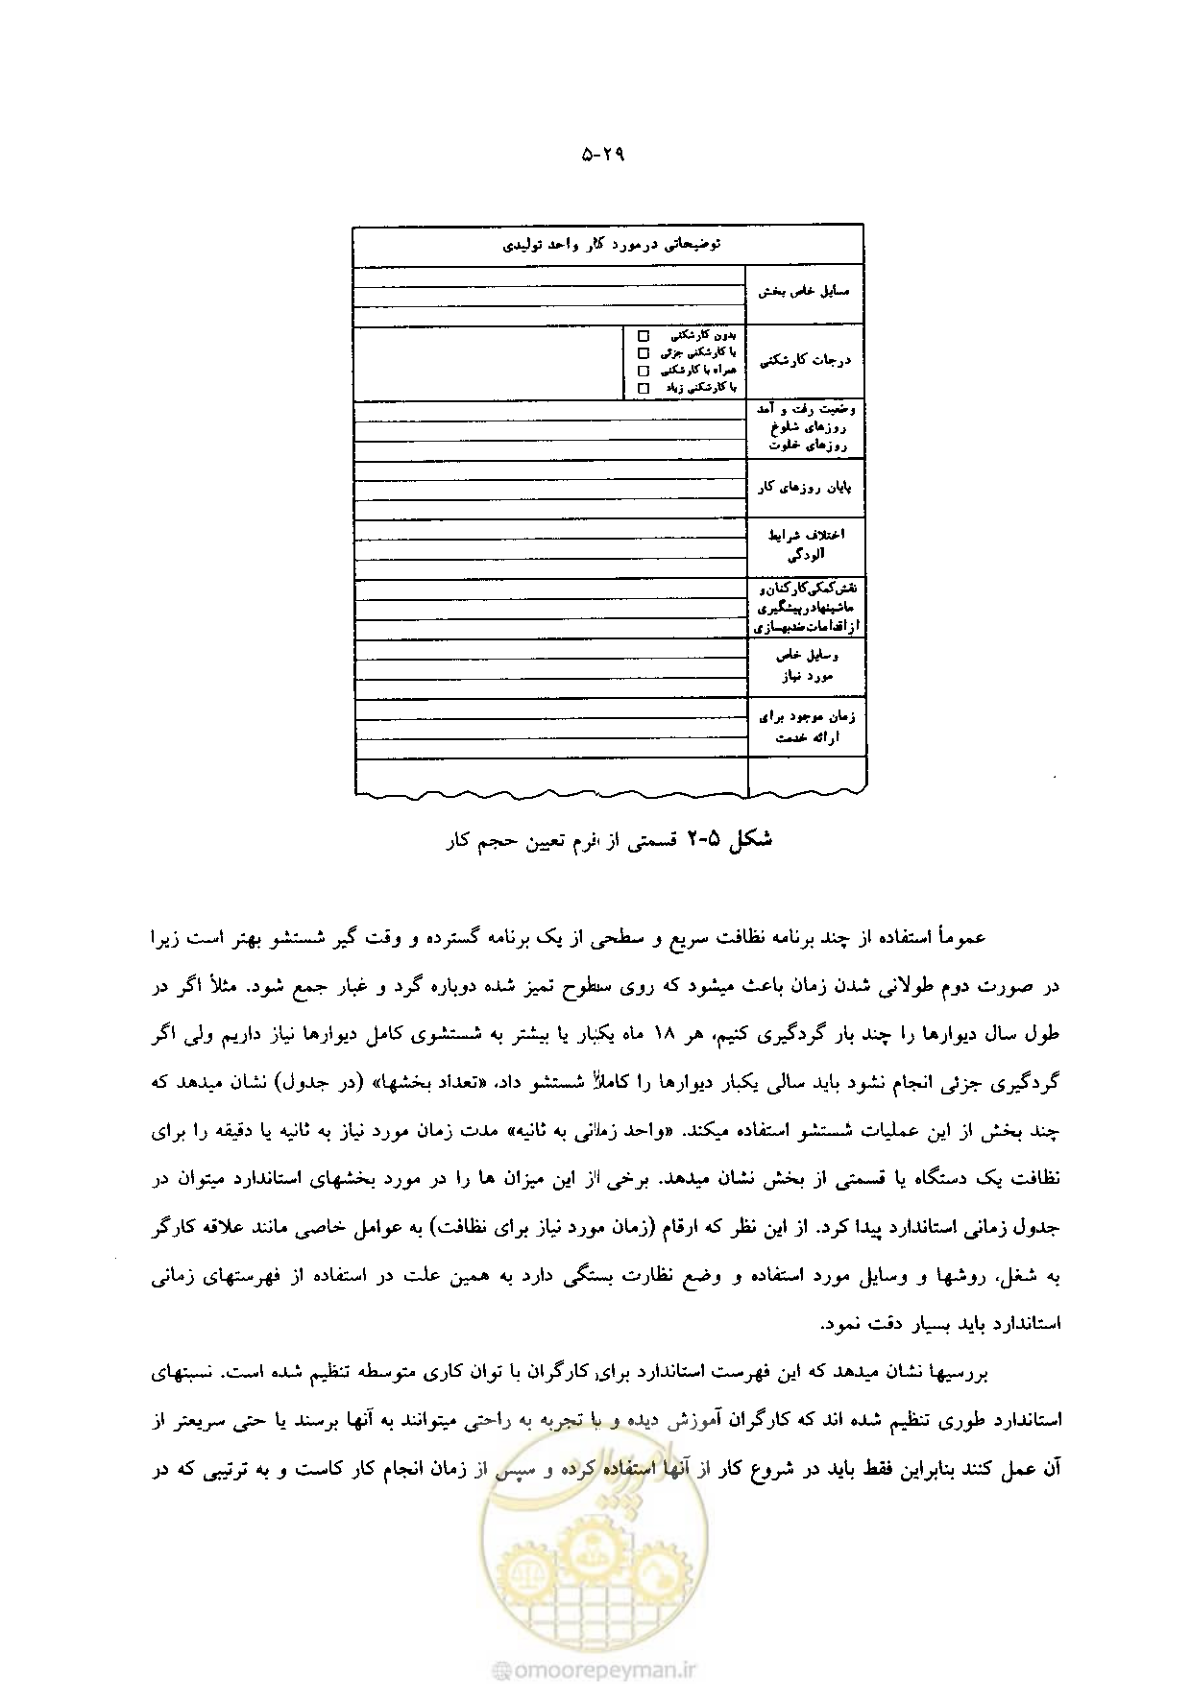 ۵-۲۹
توضیحاتی درمورد کار واحد تولیدی
مسایل خاص بخش
درجات کارشکنی
بدون کارشکنی
با کارشکنی جزئی
همراه با کارشکنی
با کارشکنی زیاد
وضعیت رفت و آمد
روزهای شلوغ
روزهای خلوت
پایان روزهای کار
اختلاف شرایط
آلودگی
نقش کمکی کارکنان و
ماشینها در پیشگیری
از اقدامات ضدبهسازی
وسایل خاص
مورد نیاز
زمان موجود برای
ارائه خدمت
شکل ۵-۲ قسمتی از فرم تعیین حجم کار
عموماً استفاده از چند برنامه نظافت سریع و سطحی از یک برنامه گسترده و وقت گیر شستشو بهتر است زیرا
در صورت دوم طولانی شدن زمان باعث میشود که روی سطوح تمیز شده دوباره گرد و غبار جمع شود. مثلاً اگر در
طول سال دیوارها را چند بار گردگیری کنیم، هر ۱۸ ماه یکبار یا بیشتر به شستشوی کامل دیوارها نیاز داریم ولی اگر
گردگیری جزئی انجام نشود باید سالی یکبار دیوارها را کاملاً شستشو داد، «تعداد بخشها» (در جدول) نشان میدهد که
چند بخش از این عملیات شستشو استفاده میکند. «واحد زمانی به ثانیه» مدت زمان مورد نیاز به ثانیه یا دقیقه را برای
نظافت یک دستگاه یا قسمتی از بخش نشان میدهد. برخی از این میزان ها را در مورد بخشهای استاندارد میتوان در
جدول زمانی استاندارد پیدا کرد. از این نظر که ارقام (زمان مورد نیاز برای نظافت) به عوامل خاصی مانند علاقه کارگر
به شغل، روشها و وسایل مورد استفاده و وضع نظارت بستگی دارد به همین علت در استفاده از فهرستهای زمانی
استاندارد باید بسیار دقت نمود.
بررسیها نشان میدهد که این فهرست استاندارد برای کارگران با توان کاری متوسطه تنظیم شده است. نسبتهای
استاندارد طوری تنظیم شده اند که کارگران آموزش دیده و با تجربه به راحتی میتوانند به آنها برسند یا حتی سریعتر از
آن عمل کنند بنابراین فقط باید در شروع کار از آنها استفاده کرده و سپس از زمان انجام کار کاست و به ترتیبی که در
امور پیمان
@omoorepeyman.ir